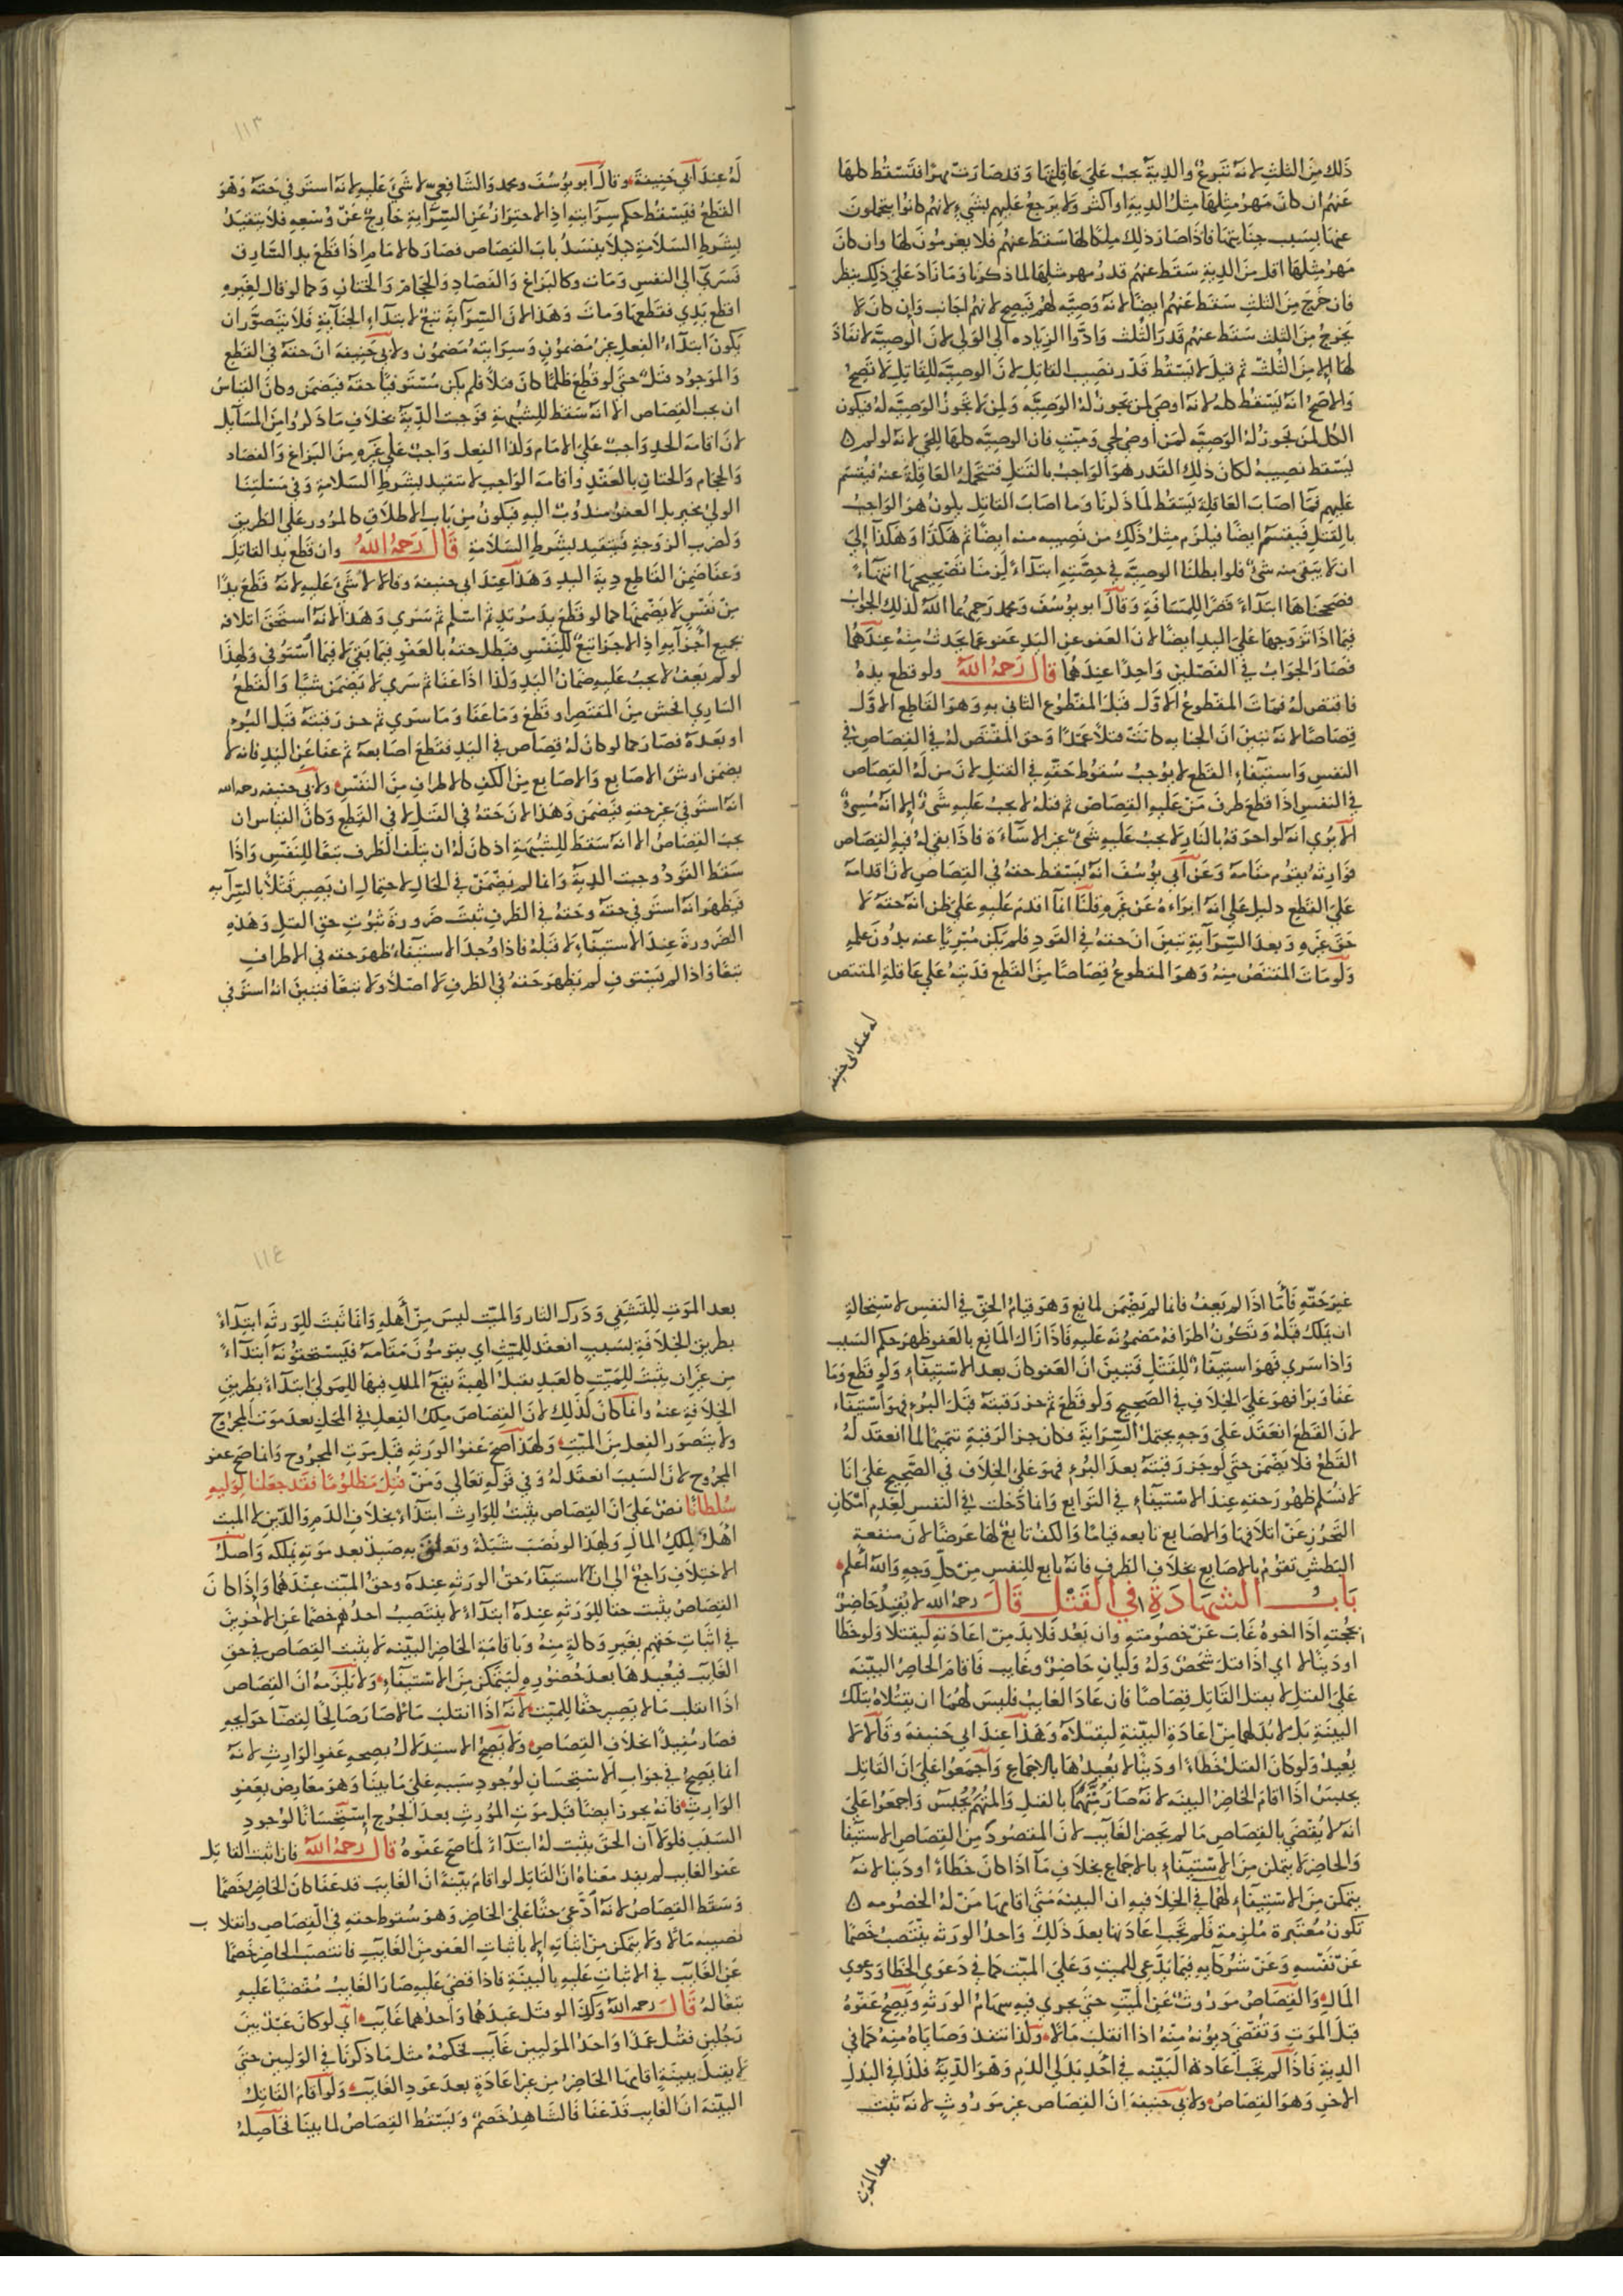 ذلك من الثلث لانه تبرع والدية تجب على عاقلتها وقد صارت مهرا فتسقط كلها
عنهم ان كان مهر مثلها مثل الدية او اكثر ولا يرجع عليهم بشيء لانهم كانوا يتحملون
عنها بسبب جنايتها فاذا صار ذلك ملكا لها سقط عنهم فلا يغرمون لها وان كان
مهر مثلها اقل من الدية سقط عنهم قدر مهر مثلها لما ذكرنا وما زاد على ذلك ينظر
فان خرج من الثلث سقط عنهم ايضا لانه وصية لهم فيصح لانهم اجانب وان كان لا
يخرج من الثلث سقط عنهم قدر الثلث وادوا الزياده الى الولي لان الوصية لا نفاذ
لها الا من الثلث ثم قيل لا يسقط قدر نصيب القاتل لان الوصية للقاتل لا تصح
والاصح انه يسقط كله لانه اوصى لمن تجوز له الوصية ولمن لا تجوز الوصية له فيكون
الكل لمن تجوز له الوصية لمن اوصى لحي وميت فان الوصية كلها للحي لانه لو لم
يسقط نصيبه لكان ذلك القدر هو الواجب بالقتل فتتحمله العاقلة عنه فيقسم
عليهم فما اصاب العاقلة يسقط لما ذكرنا وما اصاب القاتل يكون هو الواجب
بالقتل فيقسم ايضا فيلزم مثل ذلك من نصيبه منه ايضا ثم هكذا وهكذا الى
ان لا يبقى منه شيء فلو ابطلنا الوصية في حصته ابتداء لزمنا تصحيحها انتهاء
فصححناها ابتداء قصرا للمسافة وقال ابو يوسف ومحمد رحمهما الله كذلك الجواب
فيما اذا تزوجها على اليد ايضا لان العفو عن اليد عفو عما يحدث منه عندهما
فصار الجواب في الفصلين واحدا عندهما قال رحمه الله ولو قطع يده
فاقتص له فمات المقطوع الاول قتل المقطوع الثاني به وهو القاطع الاول
قصاصا لانه تبين ان الجنايه كانت قتلا عمدا وحق المقتص له في القصاص في
النفس واستيفاء القطع لا يوجب سقوط حقه في القتل لان من له القصاص
في النفس اذا قطع طرف من عليه القصاص ثم قتله لا يجب عليه شيء الا انه مسيء
الا يرى انه لو احرقه بالنار لا يجب عليه شيء غير الاساءة فاذا بقي له فيه القصاص
فوارثه يقوم مقامه وعن ابي يوسف انه يسقط حقه في القصاص لان اقدامه
على القطع دليل على انه ابراءه عن غيره قلنا انما اقدم عليه على ظن انه حقه لا
حق غيره وبعد السراية تبين ان حقه في القود فلم يكن مبريا عنه بدون علمه
ولو مات المقتص منه وهو المقطوع قصاصا من القطع فديته على عاقلة المقتص
له عند ابي حنيفه
١١٣
له عند ابي حنيفة وقال ابو يوسف ومحمد والشافعي لا شيء عليه لانه استوفى حقه وهو
القطع فيسقط حكم سرايته اذ الاحتراز عن السراية خارج عن وسعه فلا يتقيد
بشرط السلامة كيلا ينسد باب القصاص فصار كالامام اذا قطع يد السارق
فسرى الى النفس ومات وكالبزاغ والفصاد والحجام والختان وكما لو قال لغيره
اقطع يدي فقطعها ومات وهذا لان السراية تبع لابتداء الجناية فلا يتصور ان
يكون ابتداء الفعل غير مضمون وسرايته مضمون ولابي حنيفه ان حقه في القطع
والموجود قتل حتى لو قطع ظلما كان قتلا فلم يكن مستوفيا حقه فيضمن وكان القياس
ان يجب القصاص الا انه سقط للشبهة فوجبت الدية بخلاف ما ذكروا من المسايل
لان اقامة الحد واجب على الامام وكذا الفعل واجب على غيره من البزاغ والفصاد
والحجام والختان بالعقد واقامه الواجب لا تتقيد بشرط السلامة وفي مسئلتنا
الولي مخير بل العفو مندوب اليه فيكون من باب الاطلاق كالمرور على الطريق
وكضرب الزوجة فيتقيد بشرط السلامة قال رحمه الله وان قطع يد القاتل
وعفا ضمن القاطع دية اليد وهذا عند ابي حنيفه وقالا لا شيء عليه لانه قطع يدا
من نفس لا يضمنها كما لو قطع يد مرتد ثم اسلم ثم سرى وهذا لانه استحق اتلافه
بجميع اجزايه اذ الاجزا تبع للنفس فبطل حقه بالعفو فيما بقي لا فيما استوفى ولهذا
لو لم يعف لا يجب عليه ضمان اليد وكذا اذا عفا ثم سرى لا يضمن شيئا والقطع
الساري افحش من المقتصر او قطع وما عفا وما سرى ثم حز رقبته قبل البرء
او بعده فصار كما لو كان له قصاص في اليد فقطع اصابعه ثم عفا عن اليد فانه لا
يضمن ارش الاصابع والاصابع من الكف كالاطراف من النفس ولابي حنيفه رحمه الله
انه استوفى غير حقه فيضمن وهذا لان حقه في القتل لا في القطع وكان القياس ان
يجب القصاص الا انه سقط للشبهة اذ كان له ان يتلف الطرف تبعا للنفس واذا
سقط القود وجبت الدية وانما لم يضمن في الحال لاحتمال ان يصير قتلا بالسراية
فيظهر انه استوفى حقه وحقه في الطرف ثبت ضرورة ثبوت حق القتل وهذه
الضرورة عند الاستيفاء لا قبله فاذا وجد الاستيفاء ظهر حقه في الاطراف
تبعا واذا لم يستوف لم يظهر حقه في الطرف لا اصلا ولا تبعا فتبين انه استوفى
غير حقه فاما اذا لم يعف فانما لم يضمن لمانع وهو قيام الحق في النفس لاستحالة
ان يملك قتله وتكون اطرافه مضمونه عليه فاذا زال المانع بالعفو ظهر حكم السبب
واذا سرى فهو استيفاء للقتل فتبين ان العفو كان بعد الاستيفاء ولو قطع وما
عفا وبرا فهو على الخلاف في الصحيح ولو قطع ثم حز رقبته قبل البرء فهو استيفاء
لان القطع انعقد على وجه يحتمل السراية فكان حز الرقبة تتميما لما انعقد له
القطع فلا يضمن حتى لو حز رقبته بعد البرء فهو على الخلاف في الصحيح على انا
لا نسلم ظهور حقه عند الاستيفاء في التوابع وانما دخلت في النفس لعدم امكان
التحرز عن اتلافها والاصابع تابعه قياما والكف تابع لها عرضا لان منفعة
البطش تقوم بالاصابع بخلاف الطرف فانه تابع للنفس من كل وجه والله اعلم
باب الشهادة في القتل قال رحمه الله لا يقيد حاضر
بحجته اذا اخوه غاب عن خصومته وان يعد فلا بد من اعادته ليقتلا ولو خطا
او دينا لا اي اذا قتل شخص وله وليان حاضر وغايب فاقام الحاضر البينه
على القتل لا يقتل القاتل قصاصا فان عاد الغايب فليس لهما ان يقتلاه بتلك
البينة بل لا بد لهما من اعادة البينة ليقتلاه وهذا عند ابي حنيفه وقالا لا
يعيد ولو كان القتل خطاء او دينا لا يعيدها بالاجماع واجمعوا على ان القاتل
يحبس اذا اقام الحاضر البينه لانه صار متهما بالقتل والمتهم يحبس واجمعوا على
انه لا يقضي بالقصاص ما لم يحضر الغايب لان المقصود من القصاص الاستيفا
والحاضر لا يتمكن من الاستيفاء بالاجماع بخلاف ما اذا كان خطاء او دينا لانه
يتمكن من الاستيفاء لهما في الخلافيه ان البينه متى اقامها من له الخصومه
تكون معتبرة ملزمة فلم تجب اعادتها بعد ذلك واحد الورثه ينتصب خصما
عن نفسه وعن شركايه فيما يدعي للميت وعلى الميت كما في دعوى الخطا ودعوى
المال والقصاص موروث عن الميت حتى يجري فيه سهام الورثه ويصح عفوه
قبل الموت وتقضى ديونه منه اذا انقلب مالا وكذا تنفذ وصاياه منه كما في
الدية فاذا لم تجب اعادة البينه في احد بدلي الدم وهو الدية فكذا في البدل
الاخر وهو القصاص ولابي حنيفه ان القصاص غير موروث لانه ثبت
بعد الموت
١١٤
بعد الموت للتشفي ودرك الثار والميت ليس من اهله وانما ثبت للورثه ابتداء
بطريق الخلافة بسبب انعقد للميت اي يقومون مقامه فيستحقونه ابتداء
من غير ان يثبت للميت كالعبد يقبل الهبة يقع الملك فيها للمولى ابتداء بطريق
الخلافة عنه وانما كان كذلك لان القصاص ملك الفعل في المحل بعد موت المجروح
ولا يتصور الفعل من الميت ولهذا صح عفو الورثه قبل موت المجروح وانما صح عفو
المجروح لان السبب انعقد له وفي قوله تعالى ومن قتل مظلوما فقد جعلنا لوليه
سلطانا نص على ان القصاص يثبت للوارث ابتداء بخلاف الدم والدين لا الميت
اهل لملك المال ولهذا لو نصب شبكة وتعلق به صيد بعد موته يملكه واصل
الاختلاف راجع الى ان استيفاء حق الورثه عنده وحق الميت عندهما واذا كان
القصاص يثبت حقا للورثه عنده ابتداء لا ينتصب احدهم خصما عن الاخرين
في اثبات حقهم بغير وكالة منه وباقامة الحاضر البينه لا يثبت القصاص في حق
الغايب فيعيدها بعد حضوره ليتمكن من الاستيفاء ولا يلزمه ان القصاص
اذا انقلب مالا يصير حقا للميت لانه اذا انقلب مالا صار صالحا لقضا حوايجه
فصار مفيدا بخلاف القصاص ولا يصح الاستدلال بصحة عفو الوارث لانه
انما يصح في جواب الاستحسان لوجود سببه على ما بينا وهو معارض بعفو
الوارث فانه يجوز ايضا قبل موت المورث بعد الجرح استحسانا لوجود
السبب فلولا ان الحق يثبت له ابتداء لما صح عفوه قال رحمه الله فان اثبت القاتل
عفو الغايب لم يعد معناه ان القاتل لو اقام بينة ان الغايب قد عفا كان الحاضر خصما
وسقط القصاص لانه ادعى حقا على الحاضر وهو سقوط حقه في القصاص وانقلاب
نصيبه مالا ولا يتمكن من اثباته الا باثبات العفو من الغايب فانتصب الحاضر خصما
عن الغايب في الاثبات عليه بالبينة فاذا قضي عليه صار الغايب مقضيا عليه
تبعا له قال رحمه الله وكذا لو قتل عبدهما واحدهما غايب اي لو كان عبد بين
رجلين فقتل عمدا واحد الموليين غايب فحكمه مثل ما ذكرنا في الوليين حتى
لا يقتل ببينة اقامها الحاضر من غير اعادة بعد عود الغايب ولو اقام القاتل
البينه ان الغايب قد عفا فالشاهد خصم ويسقط القصاص لما بينا فحاصله